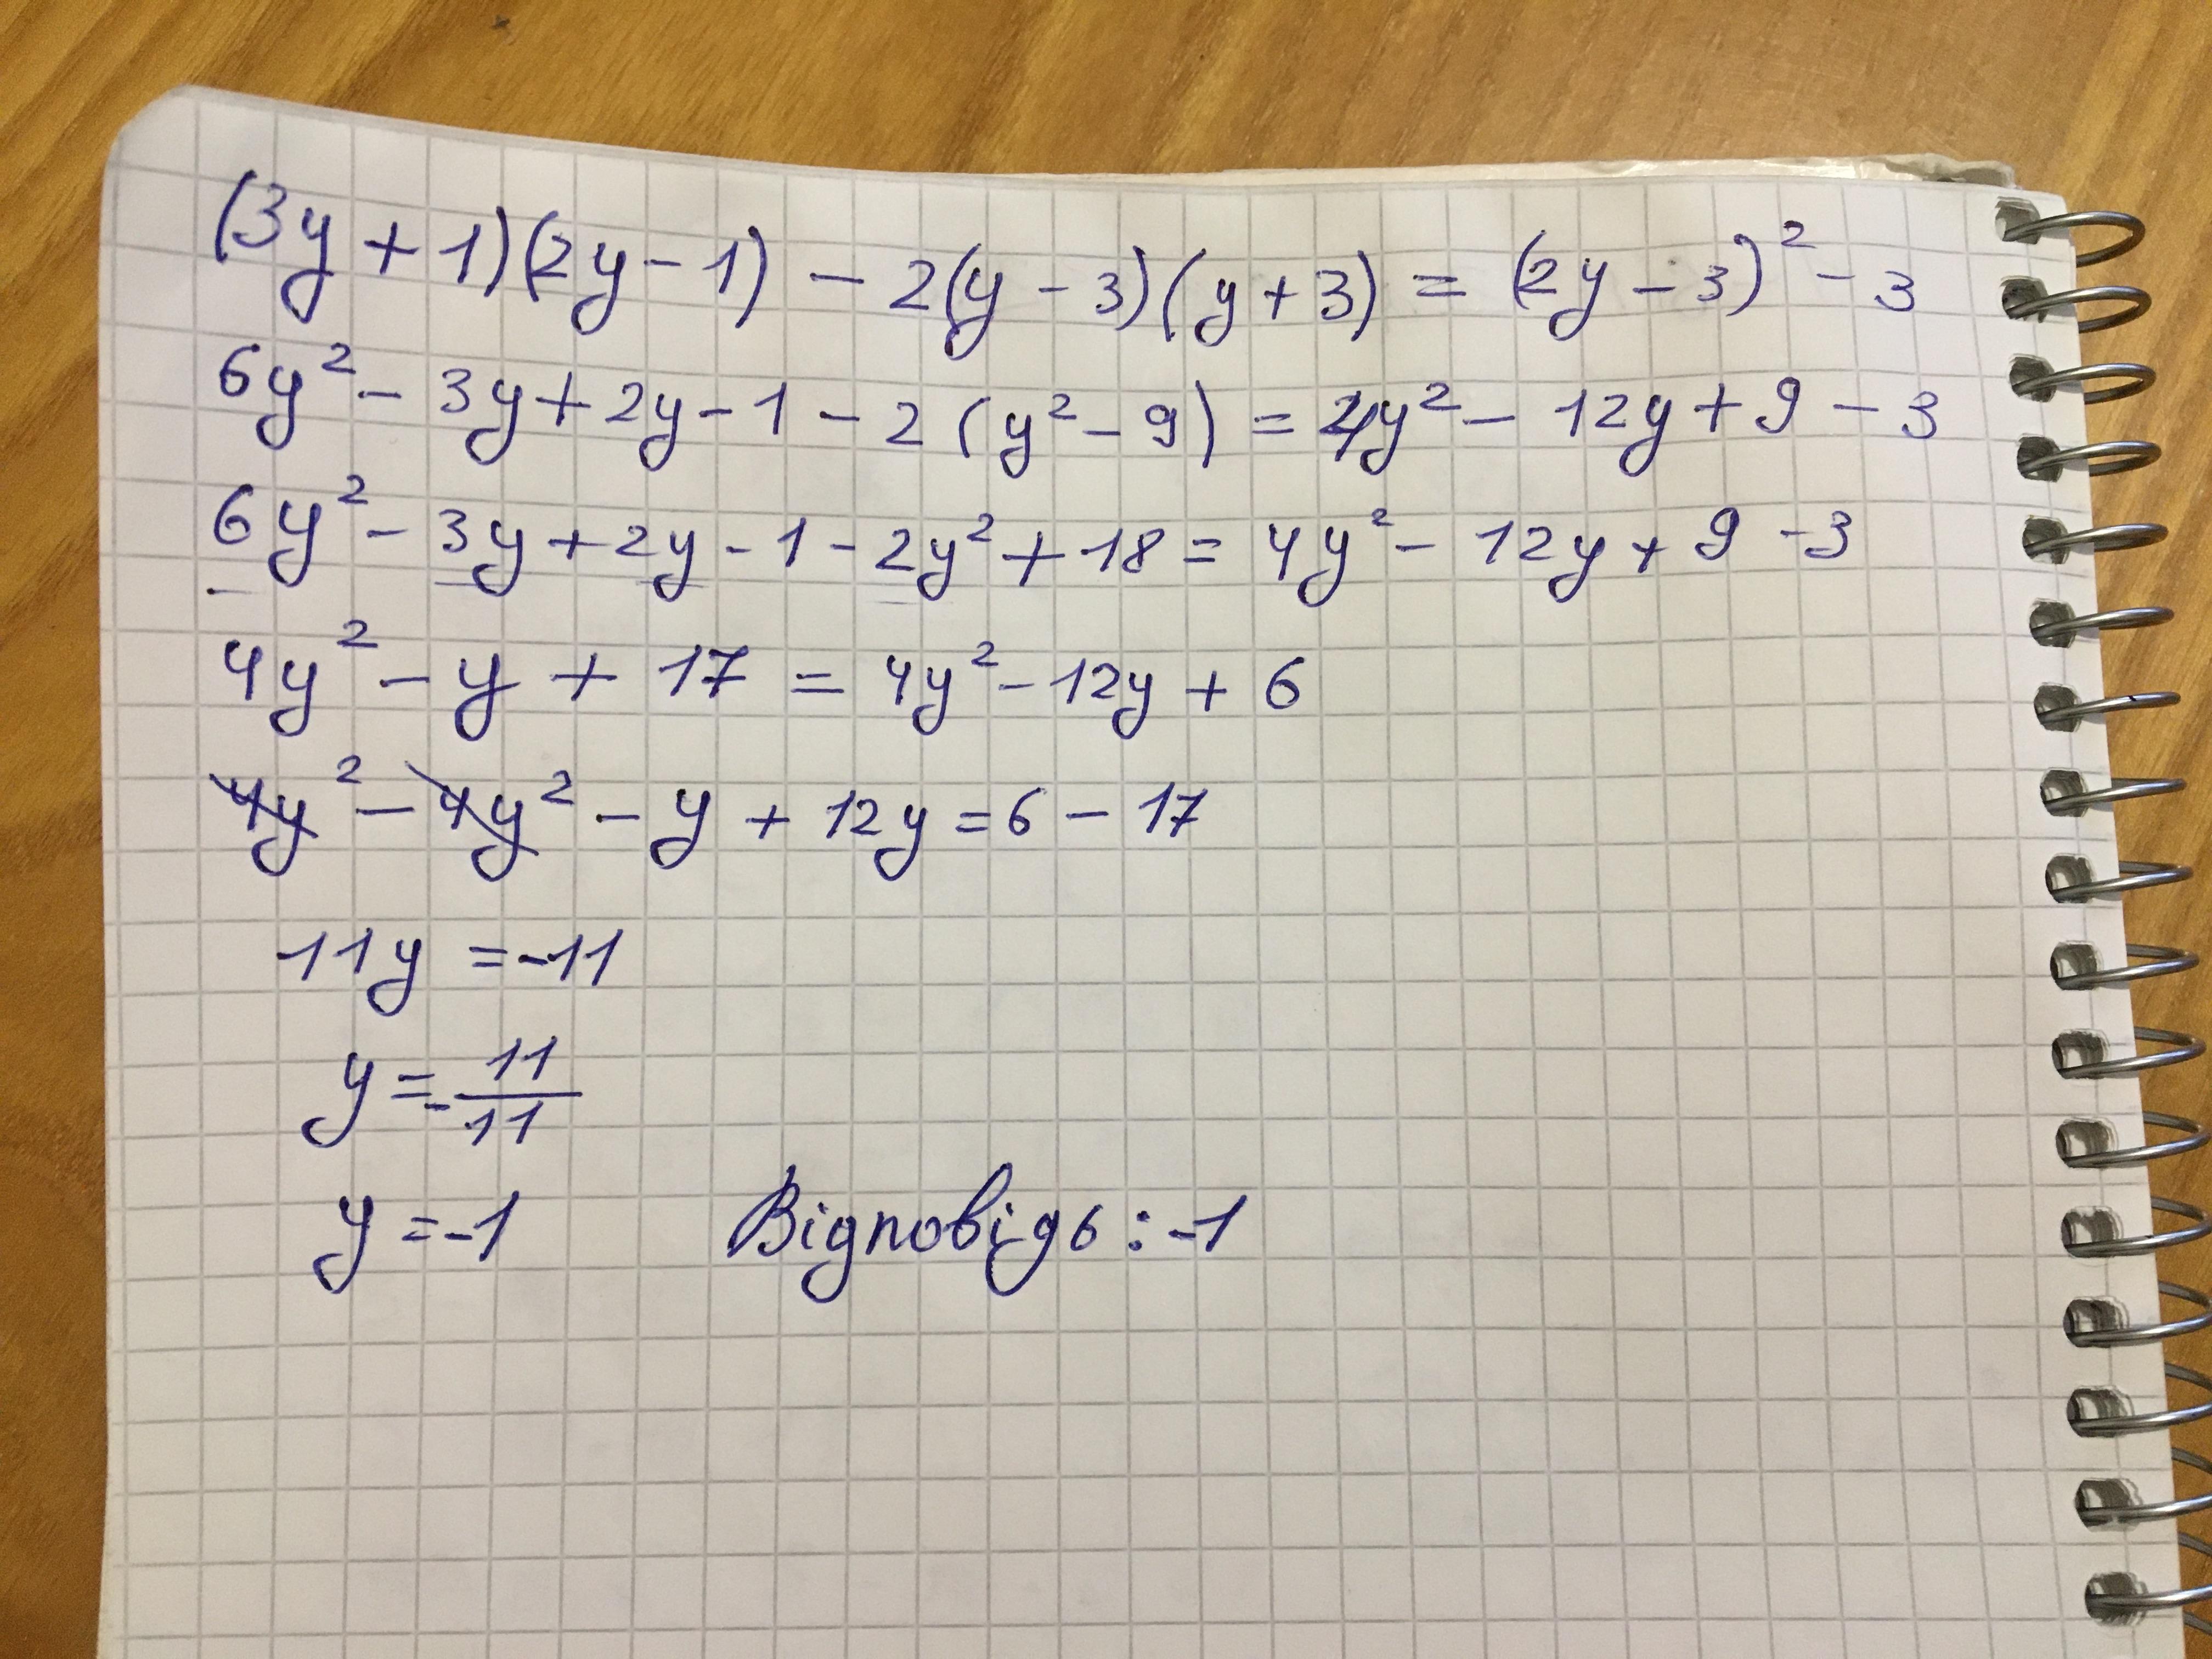 (3y + 1)(2y - 1) - 2(y - 3)(y + 3) = (2y - 3)² - 3
6y² - 3y + 2y - 1 - 2(y² - 9) = 4y² - 12y + 9 - 3
6y² - 3y + 2y - 1 - 2y² + 18 = 4y² - 12y + 9 - 3
4y² - y + 17 = 4y² - 12y + 6
4y² - 4y² - y + 12y = 6 - 17
11y = -11
y = - 11/11
y = -1 Відповідь: -1